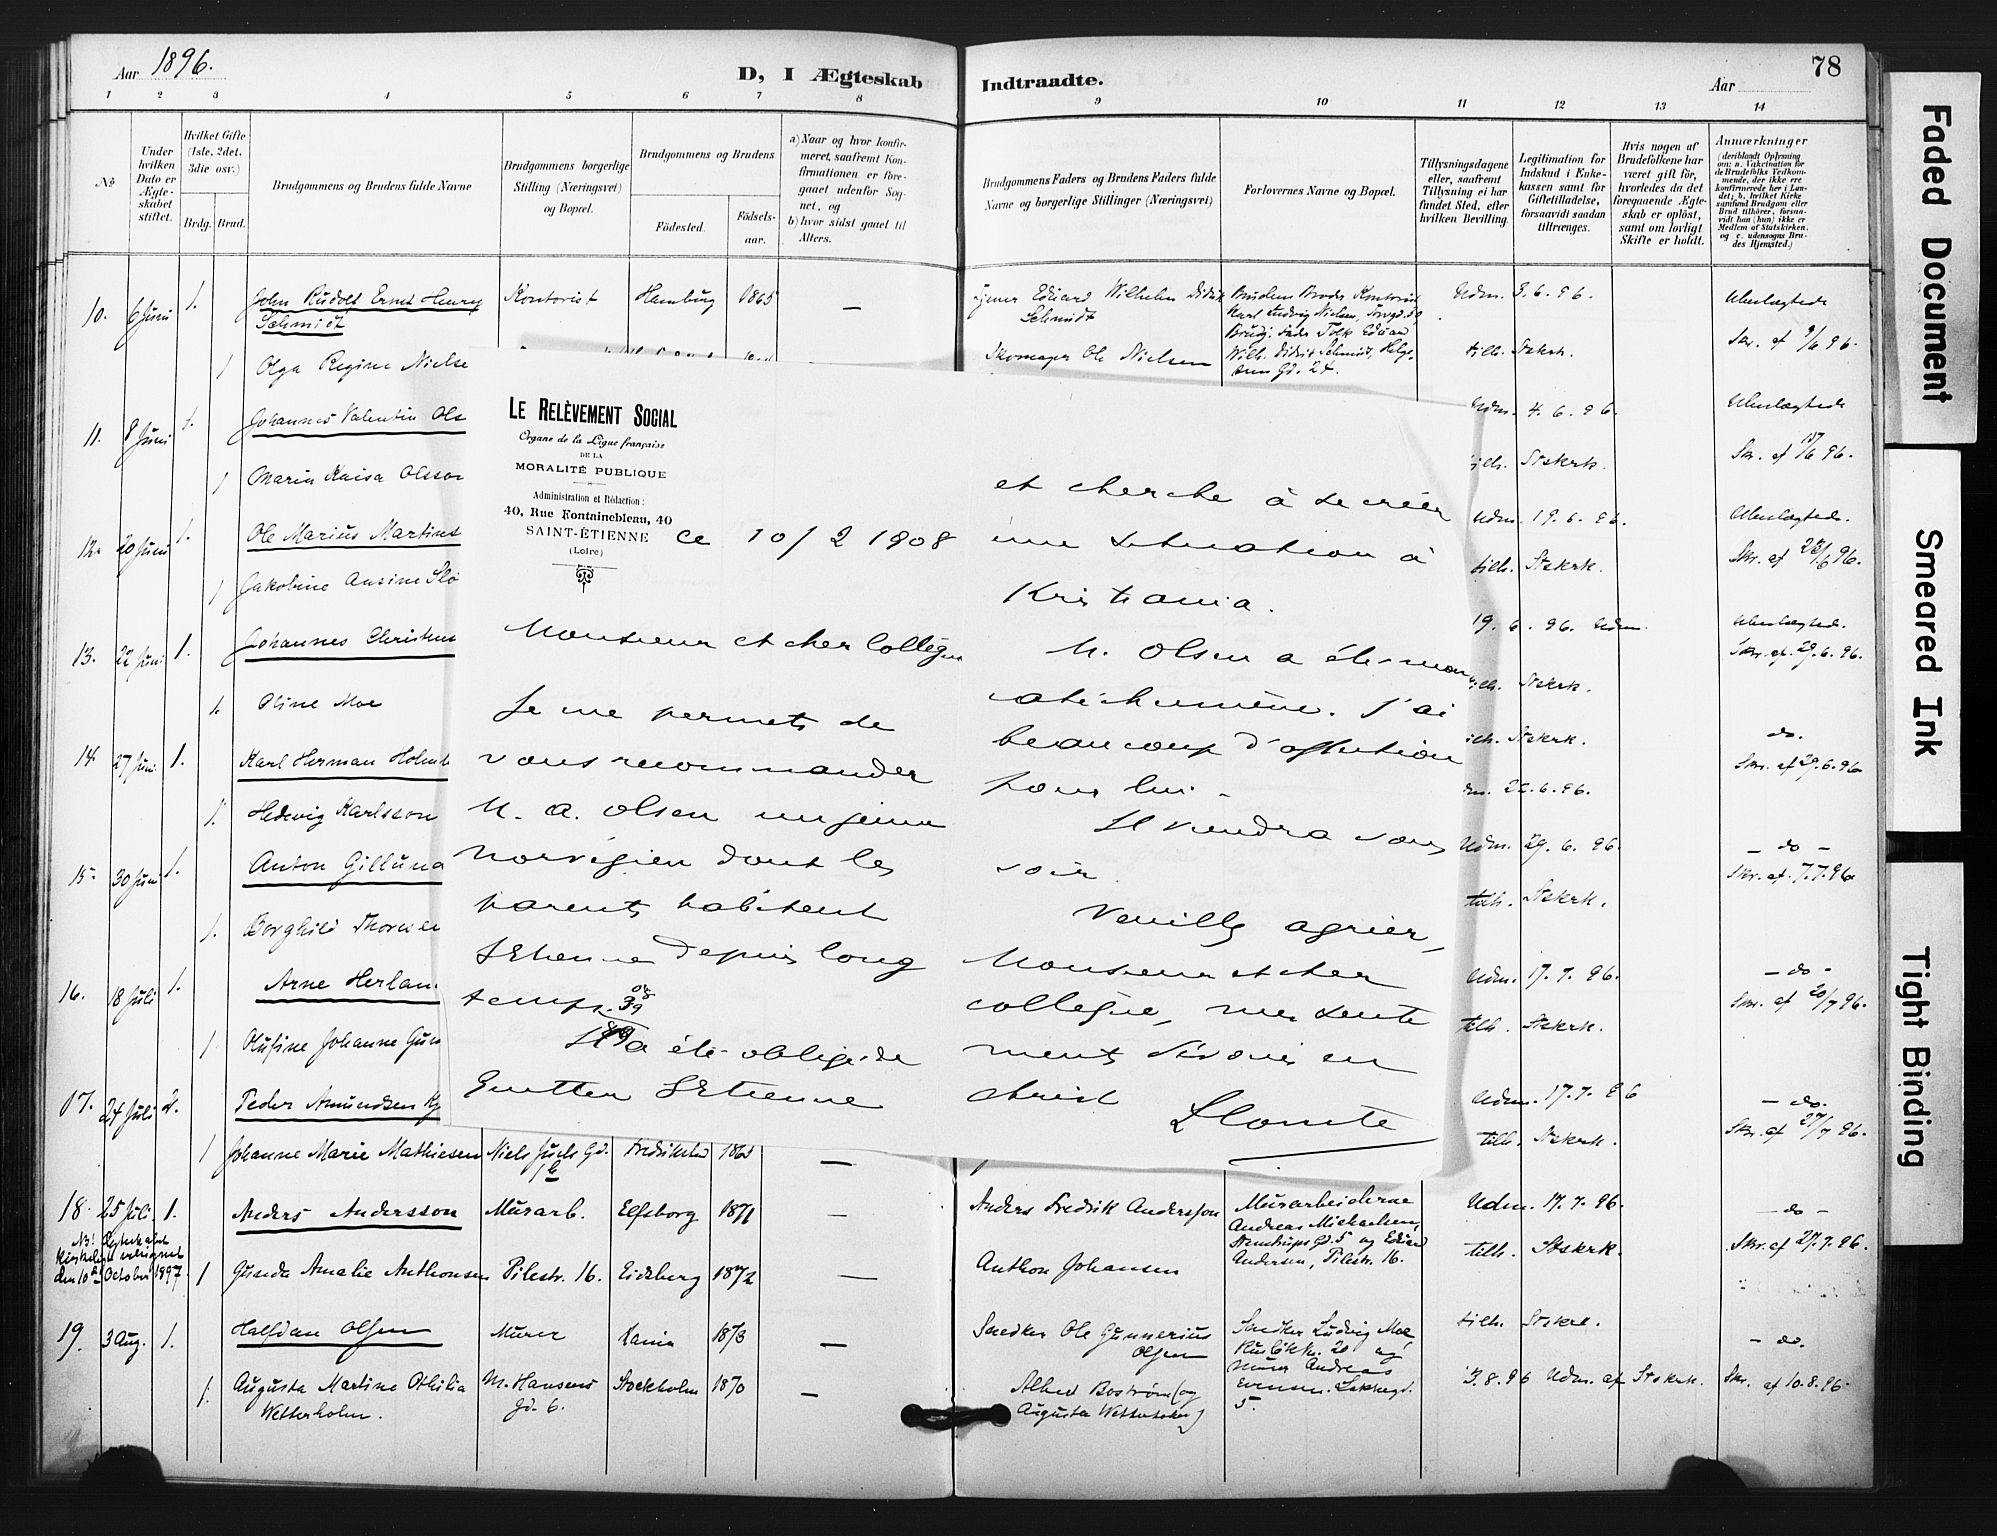 Aar 1896.
D, I Ægteskab Indtraadte.
Aar
78
1 2 3 4 5 6 7 8 9 10 11 12 13 14
No
Under hvilken Dato er Ægteskabet stiftet.
Hvilket Gifte (1ste, 2det, 3die osv.)
Brdg. Brud.
Brudgommens og Brudens fulde Navne
Brudgommens borgerlige Stilling (Næringsvei) og Bopæl.
Brudgommens og Brudens
Födested.
Födsels-aar.
a) Naar og hvor konfirmeret, saafremt Konfirmationen er foregaaet udenfor Sognet, og
b) hvor sidst gaaet til Alters.
Brudgommens Faders og Brudens Faders fulde Navne og borgerlige Stillinger (Næringsvei)
Forlovernes Navne og Bopæl.
Tillysningsdagene eller, saafremt Tillysning ei har fundet Sted, efter hvilken Bevilling.
Legitimation for Indskud i Enkekassen samt for Giftetilladelse, forsaavidt saadan tiltrænges.
Hvis nogen af Brudefolkene har været gift før, hvorledes da det foregaaende Ægteskab er oplöst, samt om lovligt Skifte er holdt.
Anmærkninger
(deriblandt Oplysning om: a. Vakcination for de Brudefolks Vedkommende, der ikke ere konfirmerede her i Landet; b. hvilket Kirkesamfund Brudgom eller Brud tilhörer, forsaavidt han (hun) ikke er Medlem af Statskirken, og c. udensogns Brudes Hjemsted.)
10. 6 Juni 1. John Rudolf Ernst Henry Schmidt Kontorist Hamburg 1865 —
Eduard Wilhelm Didrik Schmidt
Brudens Broder Kontorist Karl Ludvig Nielsen,
Brudg. Fader Tolk Eduard Wilh. Didrik Schmidt, Helgesens Gd. 24.
Udm. 3.6.96.
Ubeslægtede
Skr. af 9/6 96.
1 Olga Regine Nielse
Skomager Ole Nielsen
tilh. Stskrk.
11. 8 Juni 1. Johannes Valentin Ols
Udm. 4.6.96.
Ubeslægtede
1 Maria Kaisa Olsson
tilh. Stskrk.
12. 20 Juni 1. Ole Marius Martins
Udm. 19.6.96.
Ubeslægtede.
1 Jakobine Ansine Slö
tilh. Stskrk.
13. 22 Juni 1. Johannes Christens
19.6.96. Udm.
Ubeslægtede.
Skr. af 29.6.96.
1. Oline Moe
tilh. Stskrk.
14. 27 Juni 1. Karl Herman Holmb
tilh. Stskrk.
do.
Skr. af 29.6.96.
1. Hedevig Karlsson
22.6.96.
15. 30 Juni 1. Anton Gillund
Udm. 29.6.96.
— do —
Skr. af 7.7.96.
1. Borghild Thorese
tilh. Stskrk.
16. 18 Juli 1. Arne Herlan
Udm. 17.7.96.
— do —
Skr. af 20/7 96.
1 Olufine Johanne Gun
tilh. Stskrk.
17. 24 Juli 2. Peder Amundsen
Udm. 17.7.96
— do.
Skr. af 27/7 96.
1 Johanne Marie Mathiesen Niels Juels Gd. Fredrikstad 1865 —
tilh. Stskrk.
18. 25 Juli 1. Anders Andersson Murarb. Elfsborg 1871 —
Anders Fredrik Andersson
Murarbeiderne Andreas Michaelsen, Stenstrups Gd. 5 og Edvard Andersen, Pilestr. 16.
Udm. 17.7.96.
— do —
Skr. af 27.7.96.
NB! Ægteskabet kirkelig velsignet den 10de October 1897
1 Gunda Amalie Anthonsen Pilestr. 16. Eidsberg 1872 —
Anthon Johansen
tilh. Stskrk.
19. 3 Aug. 1. Halfdan Olsen Murer Kania 1873 —
Snedker Ole Gunnerius Olsen
Snedker Ludvig Moe Rusløkk. 20 og Murer Andreas Evensen.
5.
tilh. Stskrk.
— do.
1. Augusta Martine Othilia Wetterholm. M. Hansens Gd. 6. Stockholm 1870 —
Alfred Boström (og Augusta Wetterholm)
3.8.96 Udm. af Stskrk.
Skr. af 10.8.96.
LE RELÈVEMENT SOCIAL
Organe de la Ligue française
DE LA
MORALITÉ PUBLIQUE
Administration et Rédaction:
40, Rue Fontainebleau, 40
SAINT-ÉTIENNE
(Loire)
ce 10/2 1908
Monsieur et cher Collègue
Je me permets de
vous recommander
M. A. Olsen un jeune
norvégien dont les
parents habitent
St Etienne depuis long
temps.
Il a été obligé de
quitter St Etienne
et cherche à se créer
une situation à
Kristiania.
M. Olsen a été mon
catéchumène. J'ai
beaucoup d'affection
pour lui.
Il viendra vous
voir.
Veuillez agréer,
Monsieur et cher
collègue, mes senti
ments dévoués en
Christ
L Comte
Faded Document
Smeared Ink
Tight Binding